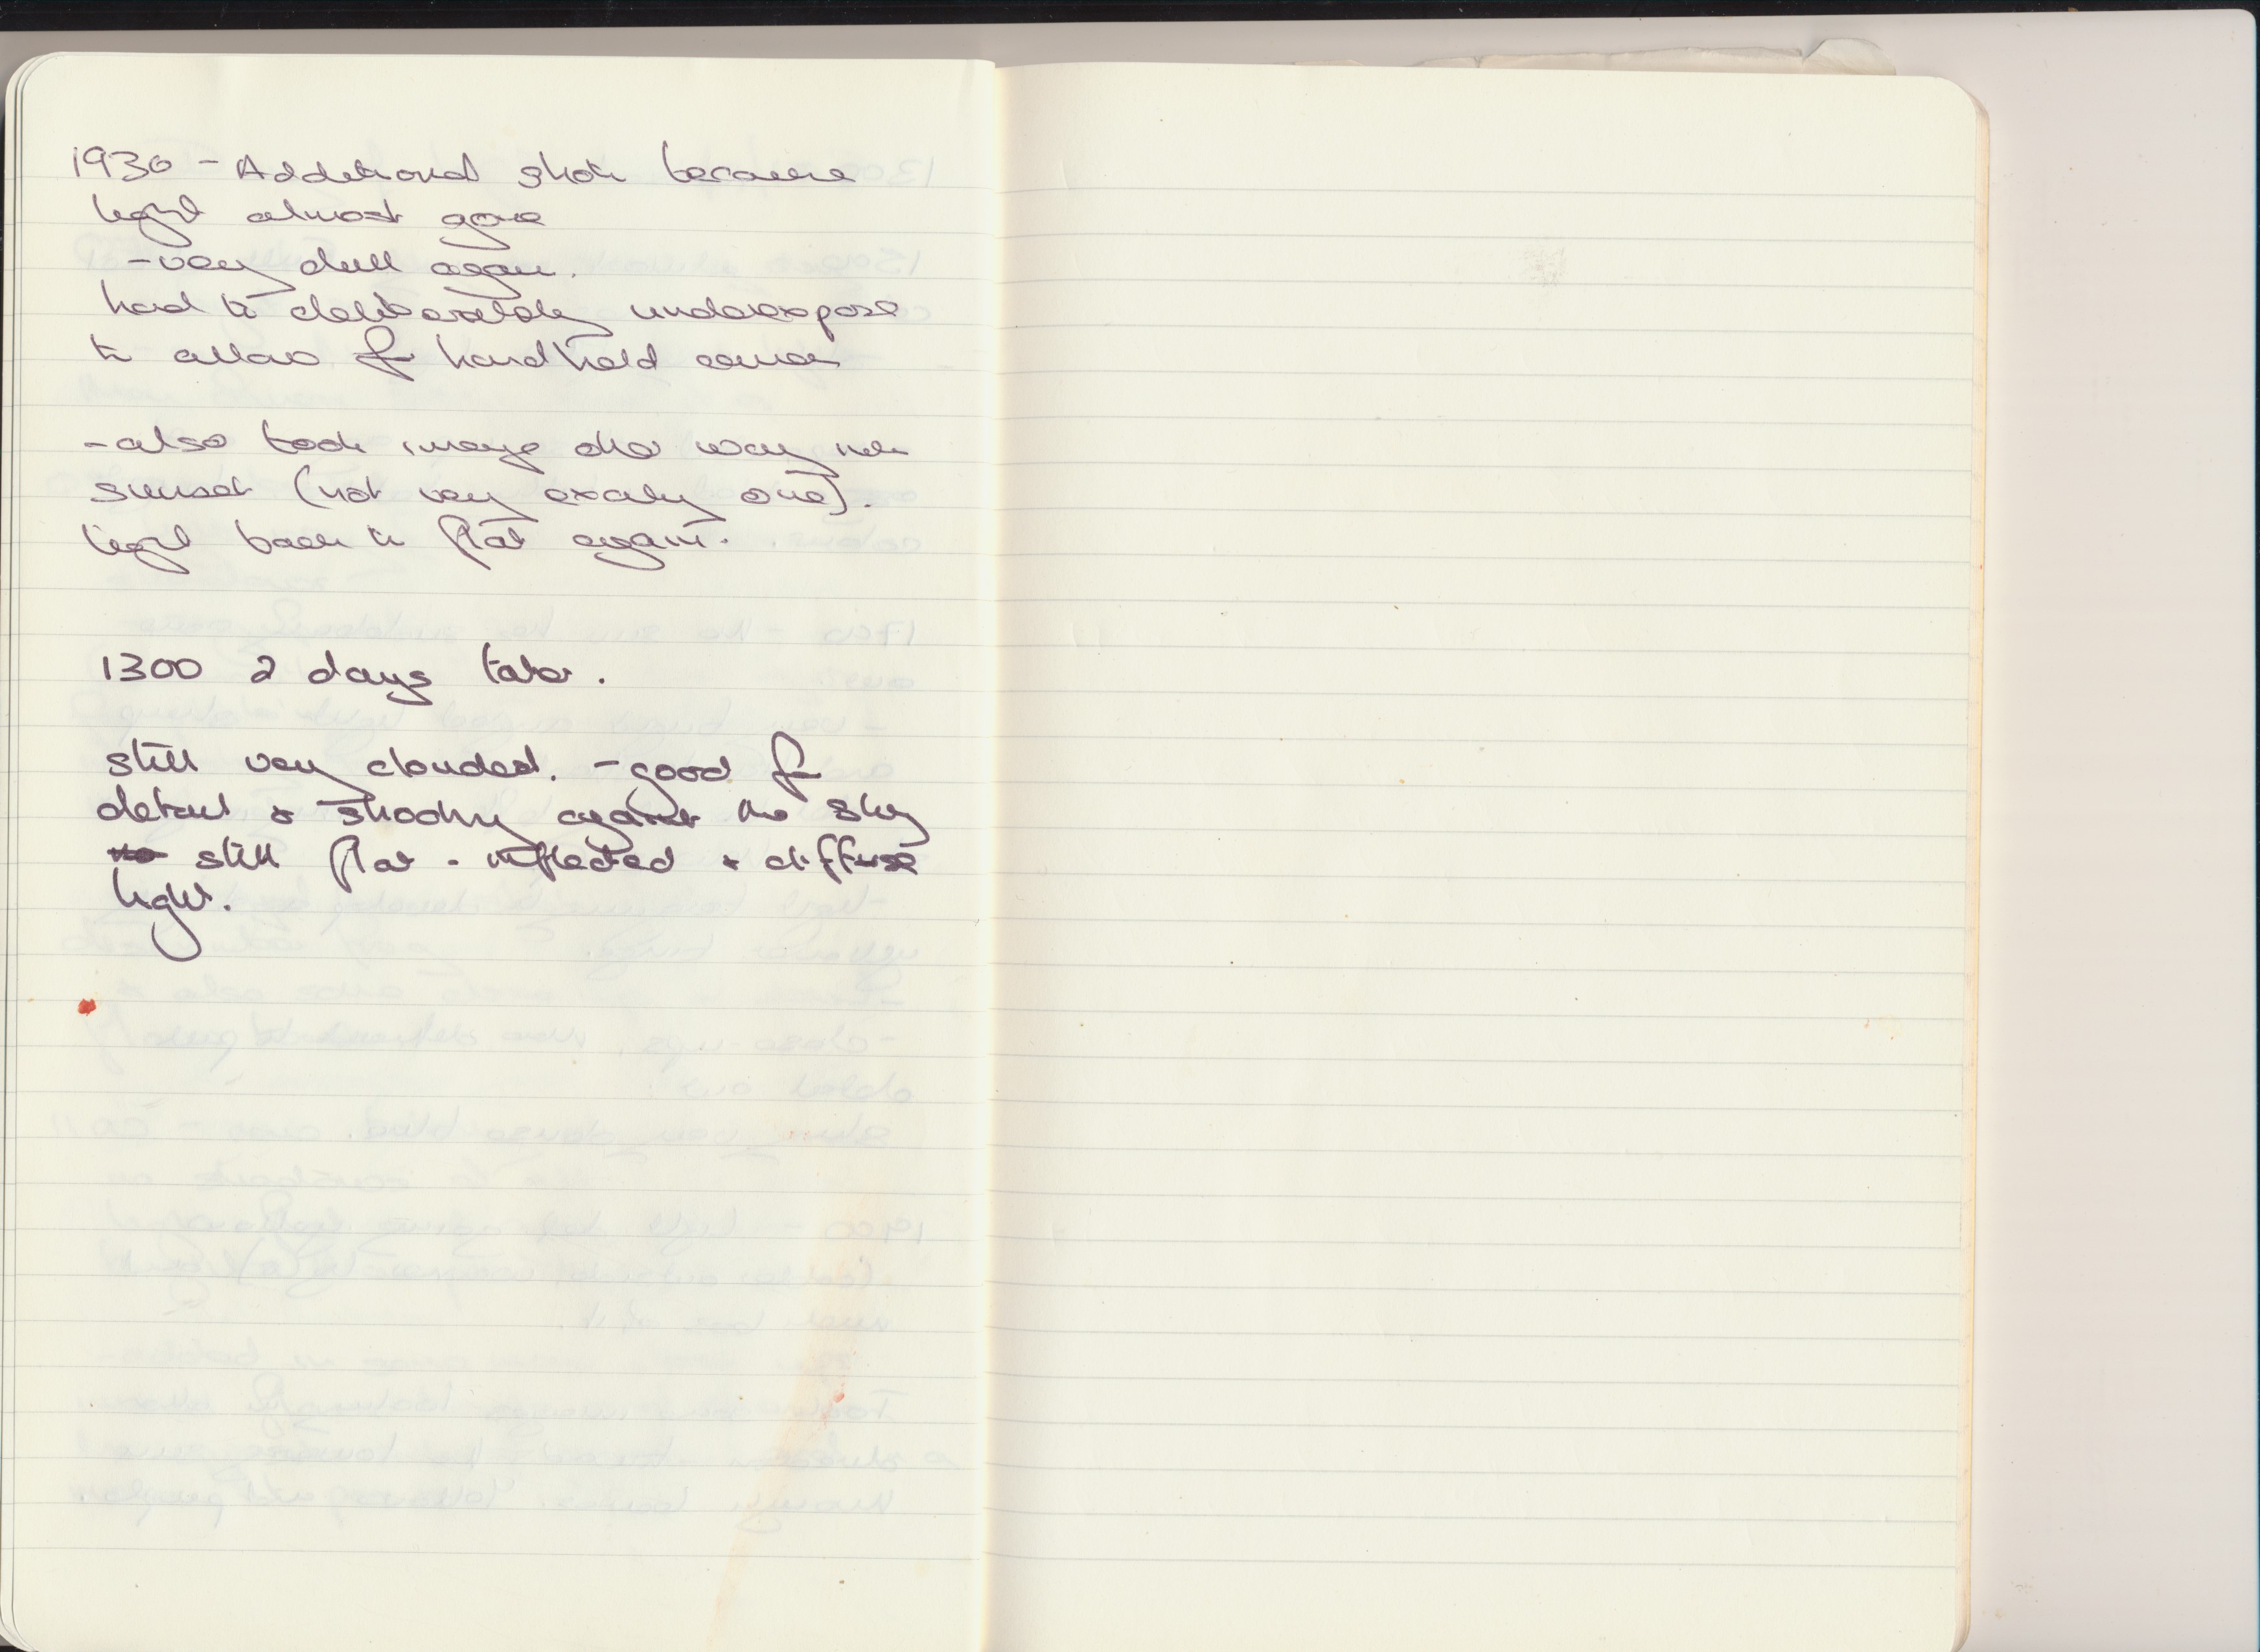 1930 - Additional shots because
light almost gone
- very dull again.
had to deliberately underexpose
to allow for handheld camera
- also took image other way into
sunset (not very exciting one).
light back to flat again.
1300 2 days later.
still very clouded. - good for
detail & shooting against the sky
still flat - reflected & diffuse
light.